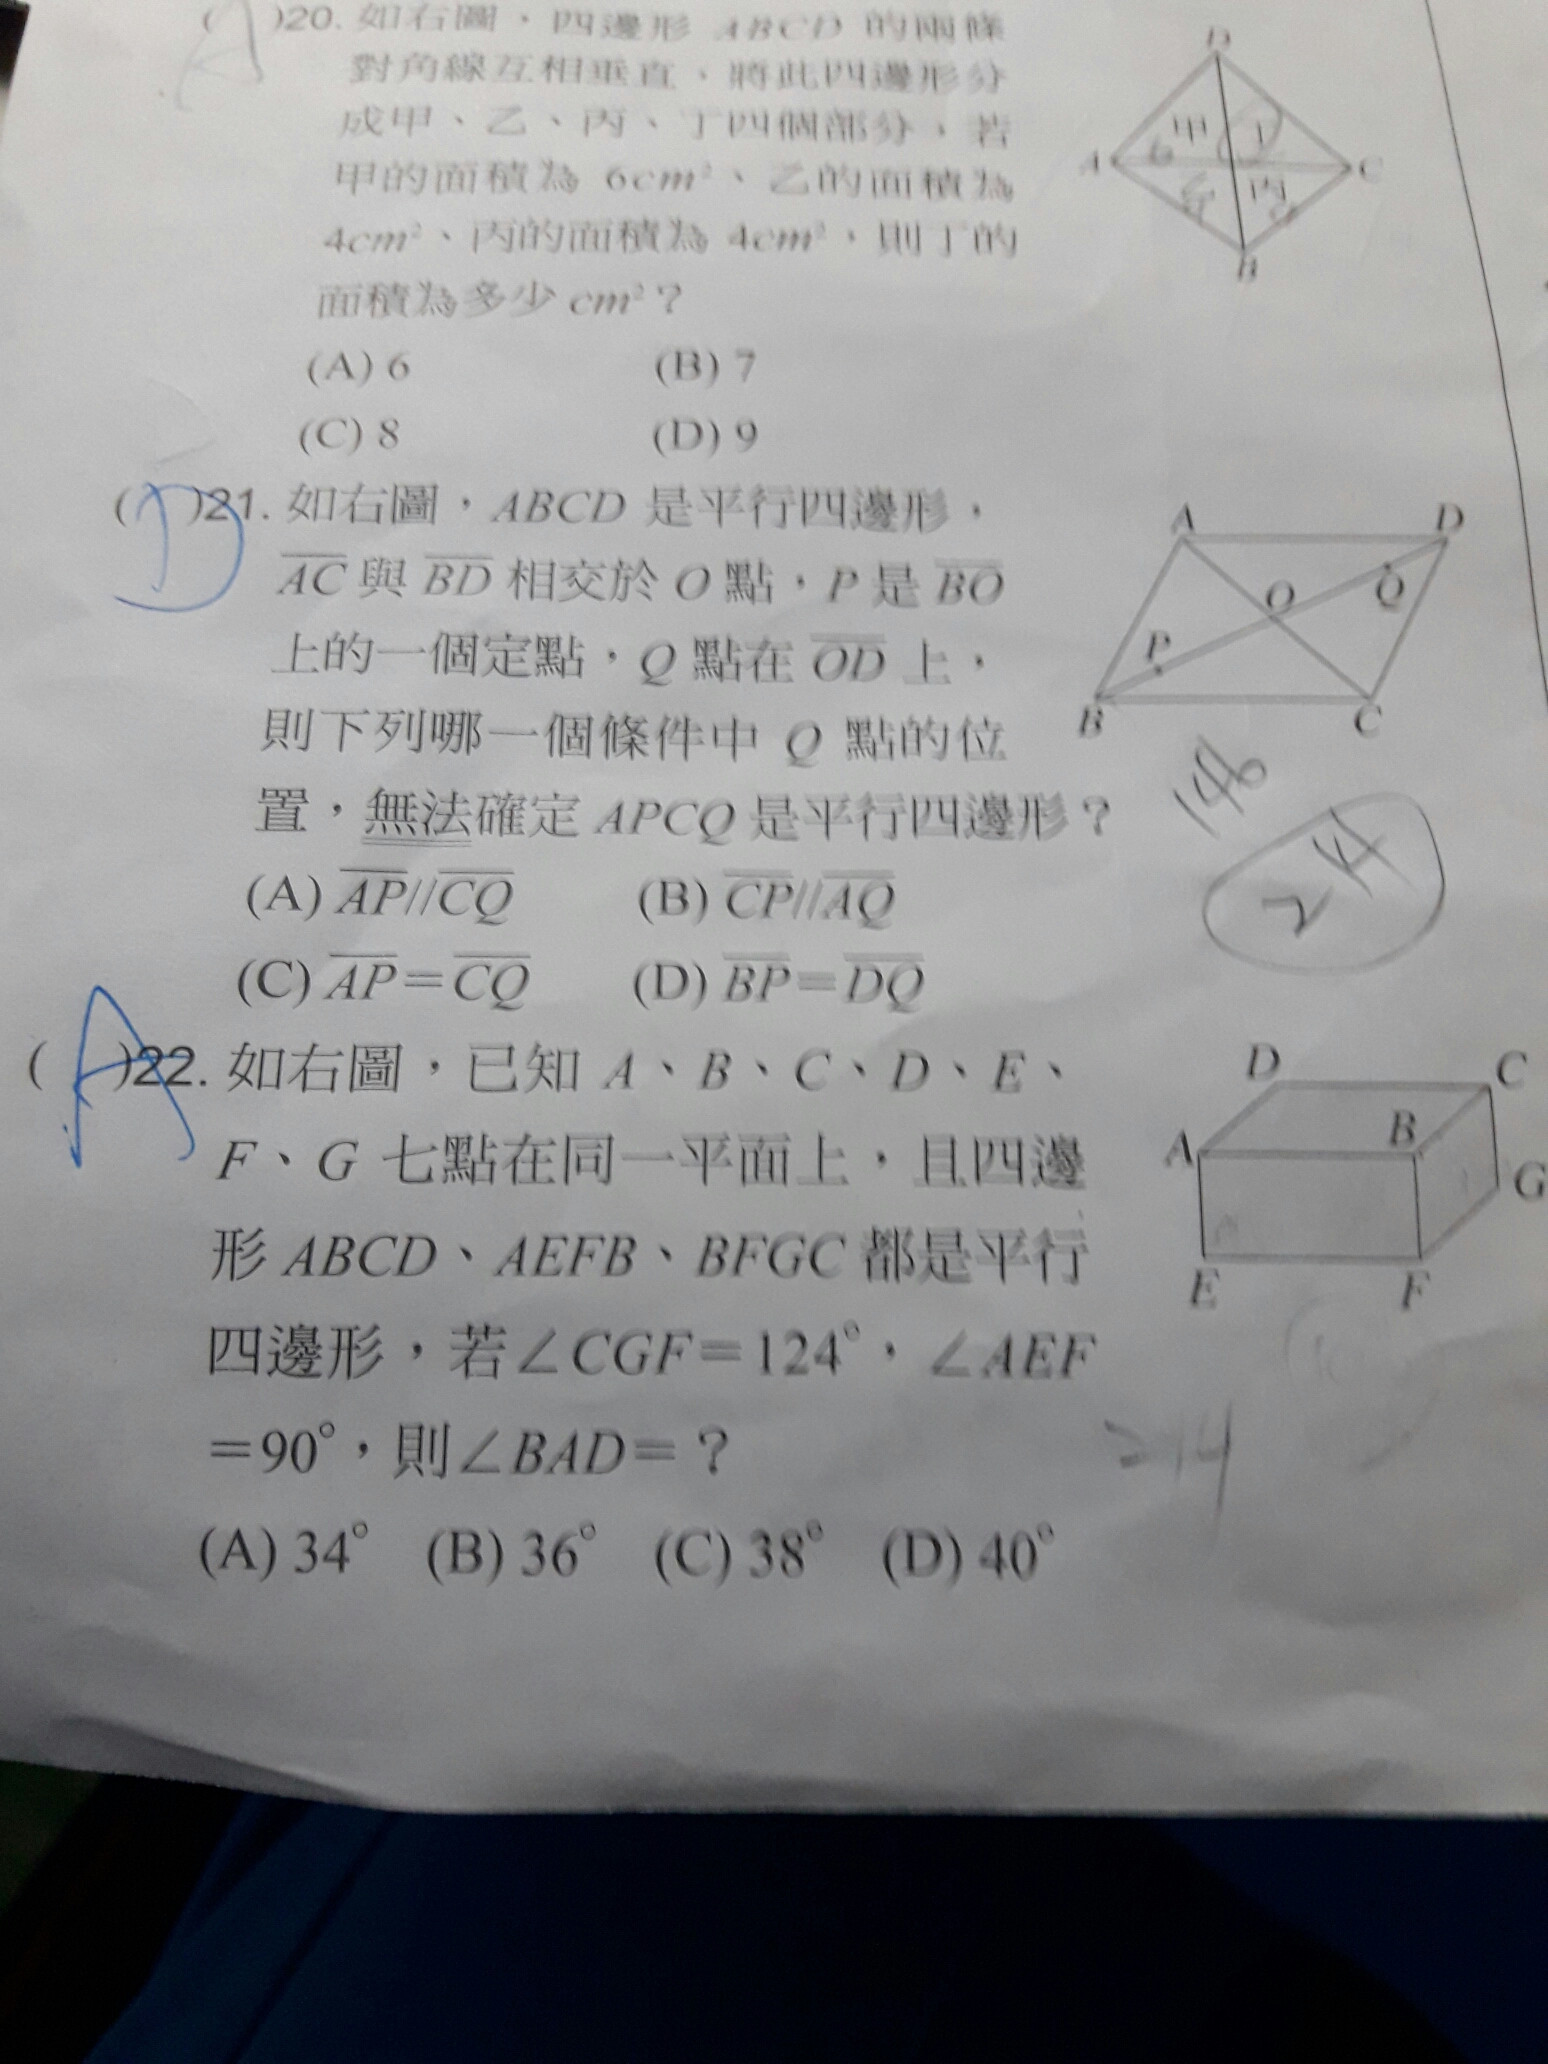 A
( )20. 如右圖，四邊形 ABCD 的兩條
對角線互相垂直，將此四邊形分
成甲、乙、丙、丁四個部分，若
甲的面積為 6cm²、乙的面積為
4cm²、丙的面積為 4cm²，則丁的
面積為多少 cm²？
(A) 6 (B) 7
(C) 8 (D) 9
D
甲
6
A
C
丙
B
(D)21. 如右圖，ABCD 是平行四邊形，
AC 與 BD 相交於 O 點，P 是 BO
上的一個定點，Q 點在 OD 上，
則下列哪一個條件中 Q 點的位
置，無法確定 APCQ 是平行四邊形？
(A) AP//CQ (B) CP//AQ
(C) AP=CQ (D) BP=DQ
A D
O Q
P
B C
146
(A)22. 如右圖，已知 A、B、C、D、E、
F、G 七點在同一平面上，且四邊
形 ABCD、AEFB、BFGC 都是平行
四邊形，若∠CGF=124°，∠AEF
=90°，則∠BAD=？
(A) 34° (B) 36° (C) 38° (D) 40°
D C
A B
G
E F